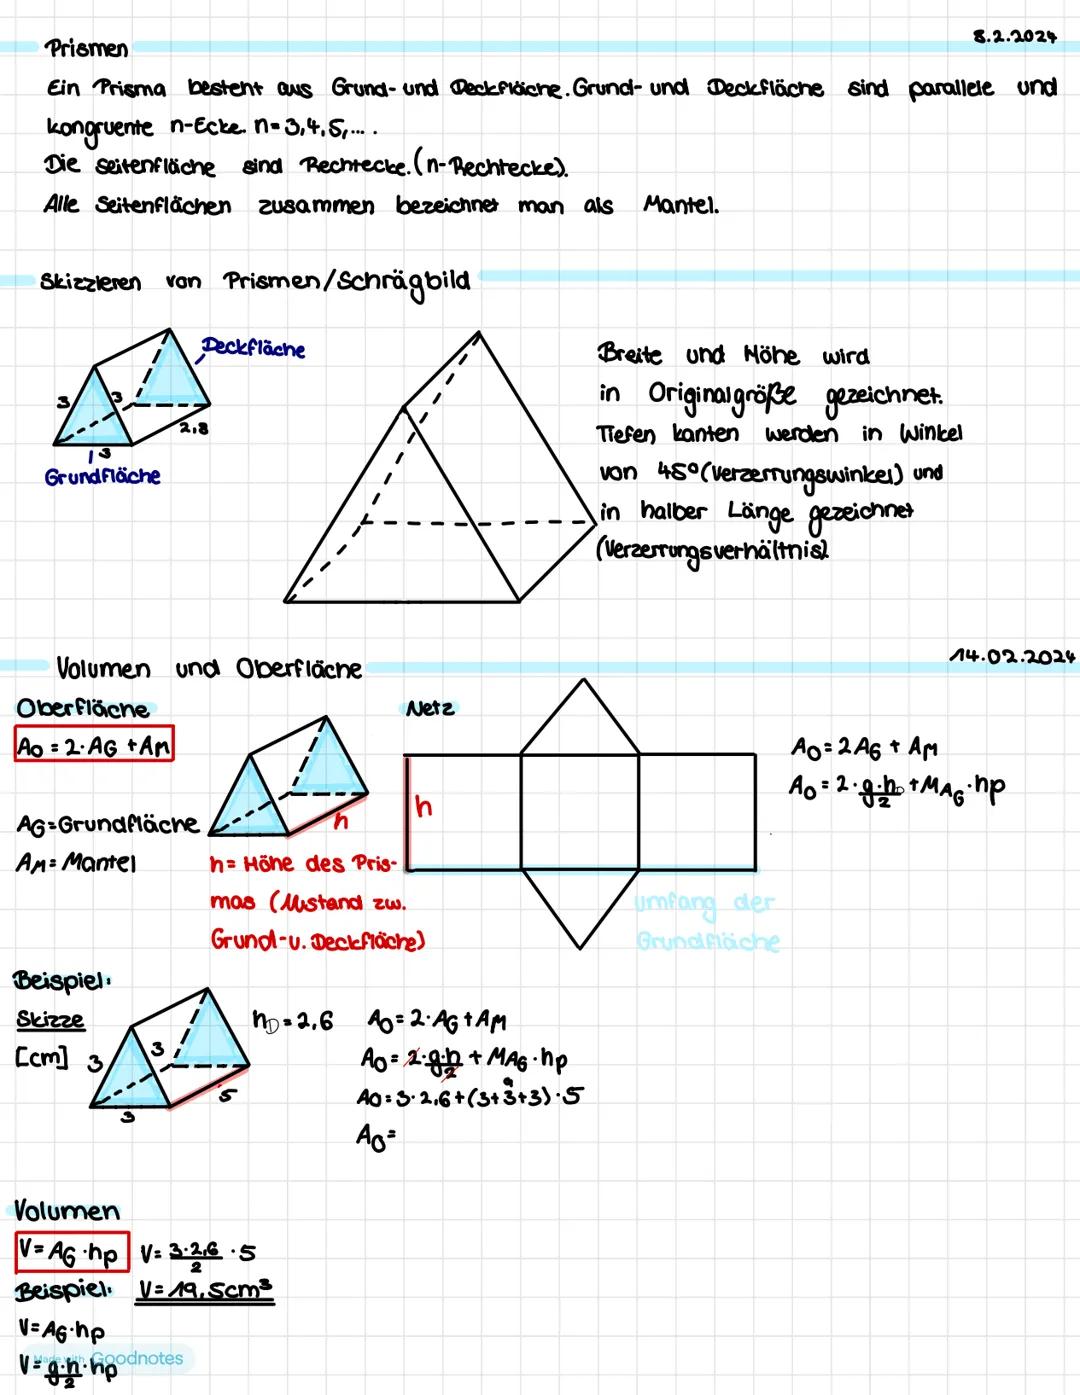 8.2.2024
Prismen
Ein Prisma besteht aus Grund- und Deckfläche. Grund- und Deckfläche sind parallele und
kongruente n-Ecke. n=3,4,5,... .
Die Seitenfläche sind Rechtecke. (n-Rechtecke).
Alle Seitenflächen zusammen bezeichnet man als Mantel.
Skizzieren von Prismen/Schrägbild
Deckfläche
3
3
2,8
3
Grundfläche
Breite und Höhe wird
in Originalgröße gezeichnet.
Tiefen kanten werden in Winkel
von 45° (Verzerrungswinkel) und
in halber Länge gezeichnet
(Verzerrungsverhältnis).
Volumen und Oberfläche
14.02.2024
Oberfläche
AO = 2·AG + AM
AG=Grundfläche
AM= Mantel
h
h= Höhe des Pris-
mas (Abstand zw.
Grund-u. Deckfläche)
Netz
h
umfang der
Grundfläche
AO = 2AG + AM
AO = 2·g·hD/2 + MAG·hp
Beispiel:
Skizze
[cm]
3
3
3
5
hD = 2,6
AO = 2·AG + AM
AO = 2·g·h/2 + MAG·hp
9
AO = 3·2,6+(3+3+3)·5
AO =
Volumen
V= AG·hp
V= 3·2,6/2 ·5
Beispiel:
V= 19,5cm³
V=AG·hp
V= g·h/2·hp
Made with Goodnotes